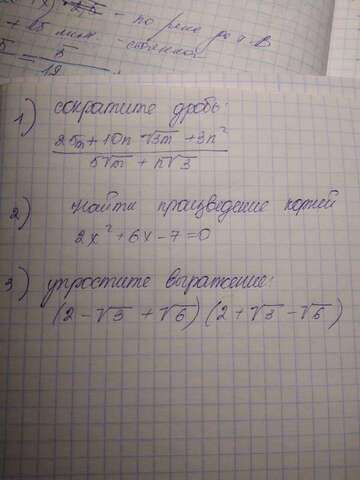 - по реке до т. В
5
12
1) сократите дробь:
25m + 10n √3m + 3n²
5√m + n√3
2) Найти произведение корней
2x² + 6x - 7 = 0
3) упростите выражение:
(2 - √3 + √6) (2 + √3 - √6)